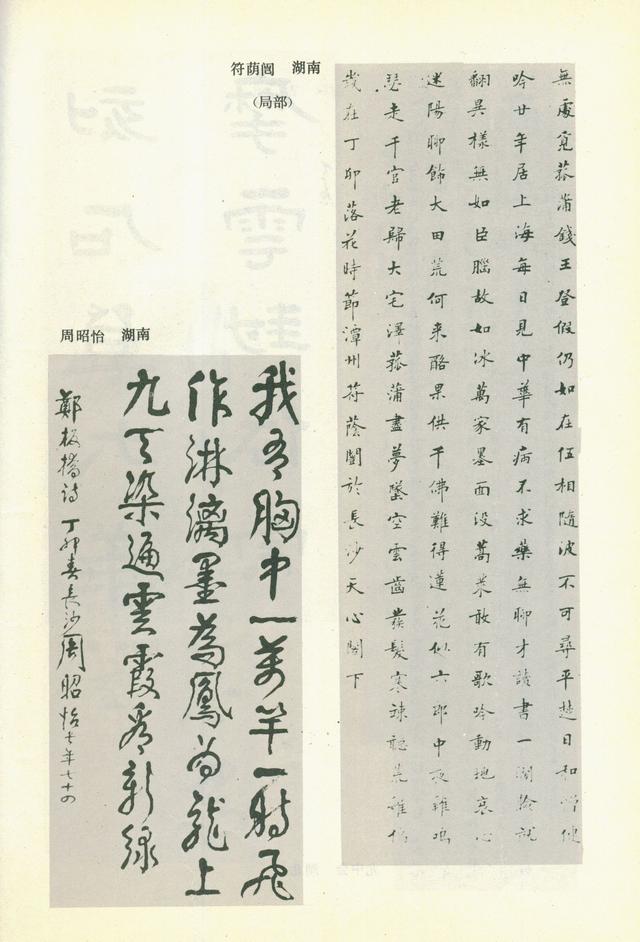 符荫闿 湖南
（局部）
無處覓菰蒲錢王登假仍如在伍相隨波不可尋平楚日和憎健
吟廿年居上海每日見中華有病不求藥無聊才讀書一闊臉就
翻異樣無如臣腦故如冰萬家墨面没蒿萊敢有歌吟動地哀心
迷陽聊飾大田荒何來酪果供千佛難得蓮花似六郎中夜雞鳴
瑟走千官老歸大宅澤菰蒲盡夢墜空雲齒髮寒竦聽荒雞偏
歲在丁卯落花時節潭州符蔭闓於長沙天心閣下
周昭怡 湖南
我有胸中一萬竿一時飛
作淋漓墨為鳳為龍上
九天染遍雲霞看新綠
鄭板橋詩 丁卯春長沙周昭怡時年七十四